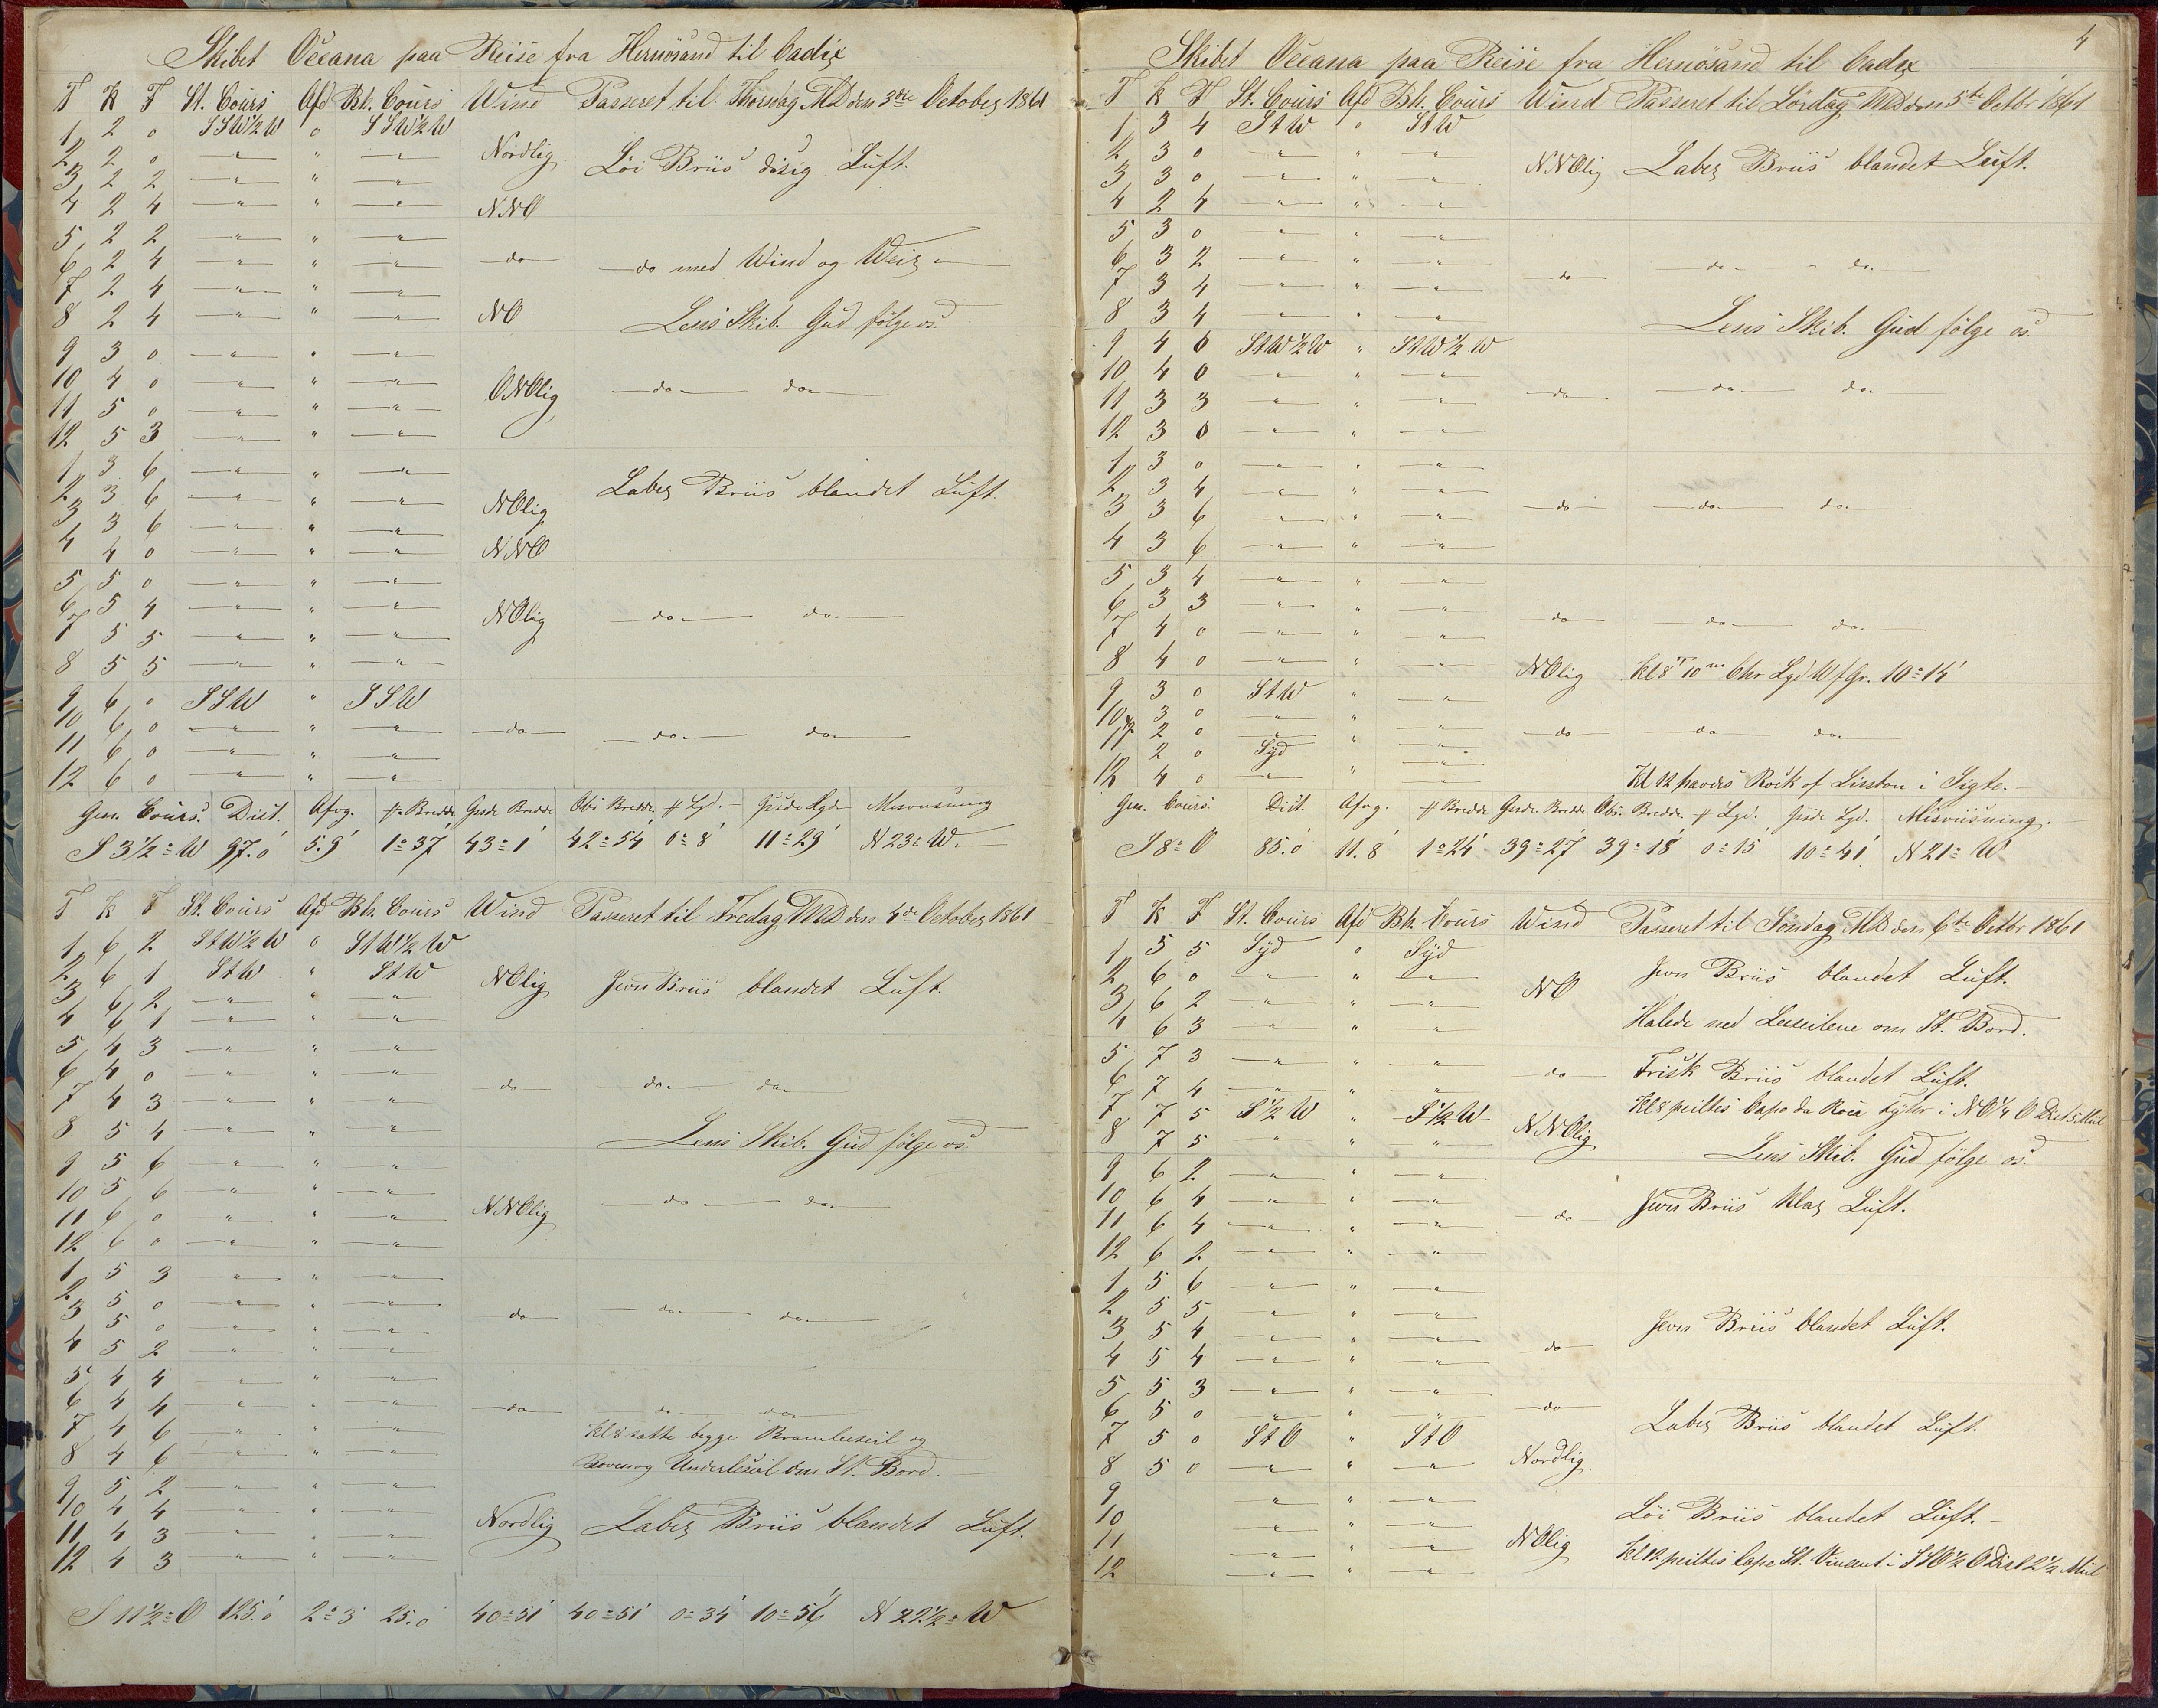 Skibet Oceana paa Reise fra Hernösand til Cadix
T K F St. Cours Afd Bb. Cours Wind Passeret til Thorsdag MD den 3die October 1861
1 2 0 SSW½W 0 SSW½W
2 2 0 " " " Nordlig Löi Briis disig Luft.
3 2 2 " " "
4 2 4 " " " NNO
5 2 2 " " "
6 2 4 " " " do do med Wind og Veir
7 2 4 " " "
8 2 4 " " " NO Lens Skib. Gud fölge os.
9 3 0 " " "
10 4 0 " " " ONOlig do do
11 5 0 " " "
12 5 3 " " "
1 3 6 " " "
2 3 6 " " " NOlig Laber Briis blandet Luft.
3 3 6 " " "
4 4 0 " " " NNO
5 5 0 " " "
6 5 4 " " " NOlig do do
7 5 5 " " "
8 5 5 " " "
9 6 0 SSW " SSW
10 6 0 " " " do do do
11 6 0 " " "
12 6 0 " " "
Gen. Cours. Dist. Afvg. f. Bredde Gisde Bredde Obs Bredde f Lgd. Gisde Lgde Misvisning
S 3½° W 97.0' 5.9' 1°37' 43°1' 42°54' 0°8' 11°29' N 23° W.
T K F St. Cours Afd Bb. Cours Wind Passeret til Fredag MD den 4de October 1861
1 6 2 StW½W 0 StW½W
2 6 1 StW " StW NOlig Jevn Briis blandet Luft.
3 6 2 " " "
4 6 1 " " "
5 4 3 " " "
6 4 0 " " " do do do
7 4 3 " " "
8 5 4 " " " Lens Skib. Gud fölge os.
9 5 6 " " "
10 5 6 " " " NNOlig do do
11 6 0 " " "
12 6 0 " " "
1 5 3 " " "
2 5 0 " " "
3 5 0 " " " do do do
4 5 2 " " "
5 4 4 " " "
6 4 4 " " " do do do
7 4 6 " " " Kl 8 satte begge Bramleeseil og
8 4 6 " " " Underleseil om St. Bord.
9 5 2 " " "
10 4 4 " " " Nordlig Laber Briis blandet Luft.
11 4 3 " " "
12 4 3 " " "
S 11½° O 125.0' 2°3' 25.0' 40°51' 40°51' 0°34' 10°56' N 22½° W
4
Skibet Oceana paa Reise fra Hernösand til Cadix
T K F St. Cours Afd Bb. Cours Wind Passeret til Lördag MD den 5te Octbr 1861
1 3 4 StW 0 StW
2 3 0 " " " NNOlig Laber Briis blandet Luft.
3 3 0 " " "
4 2 4 " " "
5 3 0 " " "
6 3 2 " " " do do do
7 3 4 " " "
8 3 4 " " " Lens Skib. Gud fölge os.
9 4 0 StW½W " StW½W
10 4 0 " " " do do do
11 3 3 " " "
12 3 0 " " "
1 3 0 " " "
2 3 4 " " "
3 3 6 " " " do do do
4 3 6 " " "
5 3 4 " " "
6 3 3 " " " do do do
7 4 0 " " "
8 4 0 " " " NOlig Kl 8T 10m Chr Lgd W f Gr. 10°14'
9 3 0 StW " "
10 3 0 " " "
11 2 0 " " " do do do
2 0 Syd " "
12 4 0 " " " Kl 12 havdes Rock of Lissbon i Sigte.
Gen. Cours. Dist. Afvg. f Bredde Gisde. Bredde Obs. Bredde f Lgd. Gisde Lgd. Misviisning.
S 8° O 85.0' 11.8' 1°24' 39°27' 39°18' 0°15' 10°41' N 21° W
T K F St. Cours Afd Bb. Cours Wind Passeret til Söndag MD den 6te Octbr 1861
1 5 5 Syd 0 Syd
2 6 0 " " " NO Jevn Briis blandet Luft.
3 6 2 " " "
4 6 3 " " " Halede ned Leeseilene om St. Bord.
5 7 3 " " "
6 7 4 " " " do Frisk Briis blandet Luft.
7 7 5 S½W " S½W Kl 8 peiltes Capo da Roca Fyhr i NO¼O Dist 5 Miil
8 7 5 " " " NNOlig Lens Skib. Gud fölge os.
9 6 2 " " "
10 6 4 " " " do Jevn Briis klar Luft.
11 6 4 " " "
12 6 2 " " "
1 5 6 " " "
2 5 5 " " "
3 5 4 " " " do Jevn Briis blandet Luft.
4 5 4 " " "
5 5 3 " " "
6 5 0 " " " do Laber Briis blandet Luft.
7 5 0 StO " StO
8 5 0 " " " Nordlig
9 " " "
10 " " " Löi Briis blandet Luft.
11 " " " NOlig
12 " " " Kl 12 peiltes Cape St. Vincent i SSO½O Dist 2½ Miil